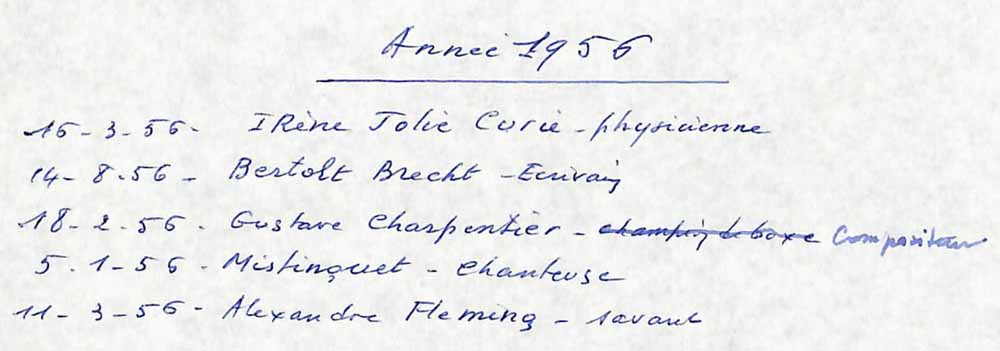 Année 1956
16-3-56- IRène Jolie Curie - physicienne
14-8-56 - Bertolt Brecht - Ecrivain
18-2-56 - Gustave Charpentier - champion de boxe Compositeur
5.1-56 - Mistinguet - Chanteuse
11-3-56 - Alexandre Fleming - savant